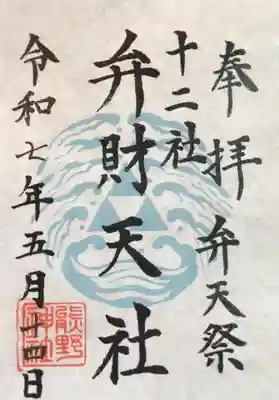 奉拝 弁天祭
十二社
弁財天社
令和七年五月十四日
熊野神社